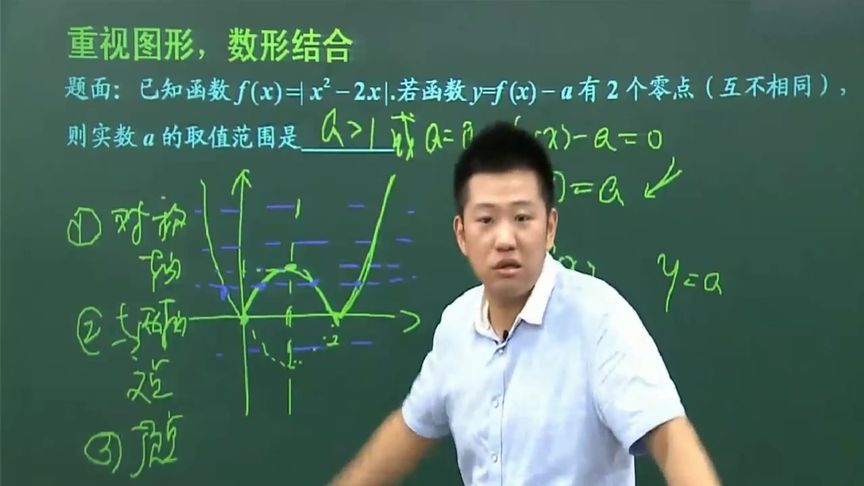 重视图形，数形结合
题面：已知函数 f(x)=|x²−2x|.若函数 y=f(x)−a 有 2 个零点（互不相同），
则实数 a 的取值范围是 a>1 或 a= x)−a=0
)=a
① 对称
轴
y=a
② 与两轴
交点
2
③ 顶点